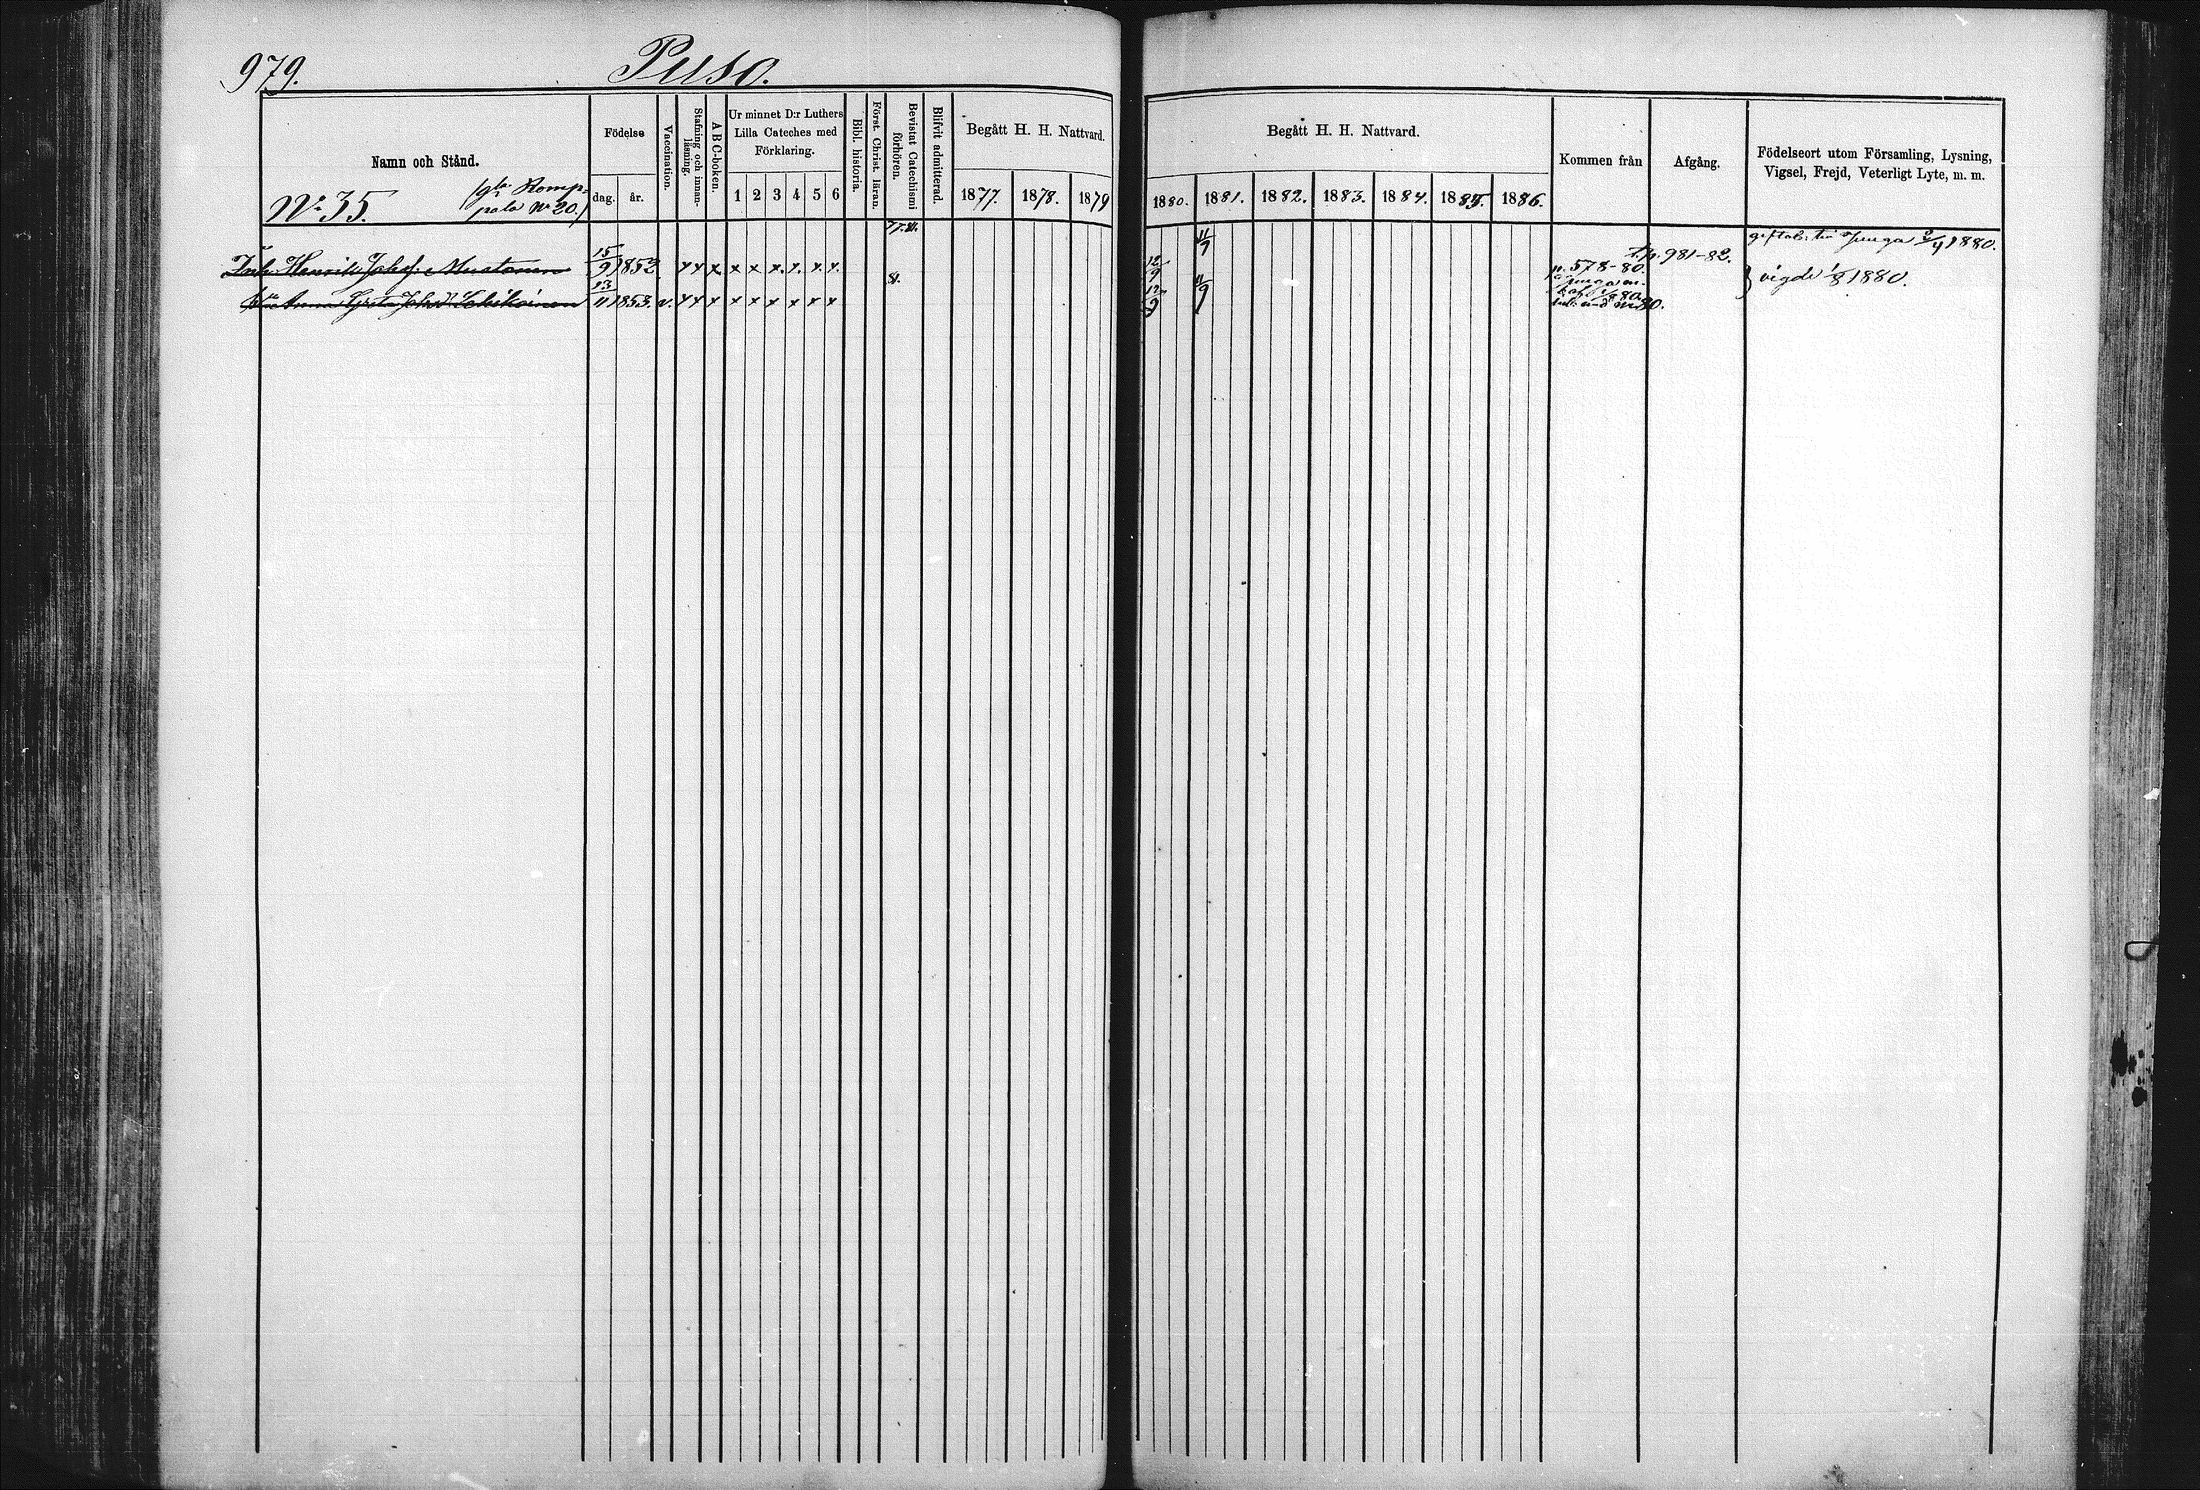 979.
Puso.
Namn och Stånd.
Födelse
dag.
år.
Vaccination.
Stafning och innan-
läsning.
A B C-boken.
Ur minnet D:r Luthers
Lilla Cateches med
Förklaring.
1 2 3 4 5 6
Bibl. historia.
Först. Christ. läran.
Bevistat Catechismi
förhören.
Blifvit admitterad.
Begått H. H. Nattvard.
1877. 1878. 1879
Begått H. H. Nattvard.
1880. 1881. 1882. 1883. 1884. 1885. 1886.
Kommen från
Afgång.
Födelseort utom Församling, Lysning,
Vigsel, Frejd, Veterligt Lyte, m. m.
No 35.
(gla Romp-
pala No 20.)
77. 81.
11/9
Inh. Henrik Johs: Mustonen 15/9 1852. x x x x x x x x x
12/9
p. 578-80.
t. p. 981-82.
1880.
81.
Anna Greta Johsdr 13/11 1853. v. x x x x x x x x x
12/9 11/9
80.
} vigde 1/8 1880.